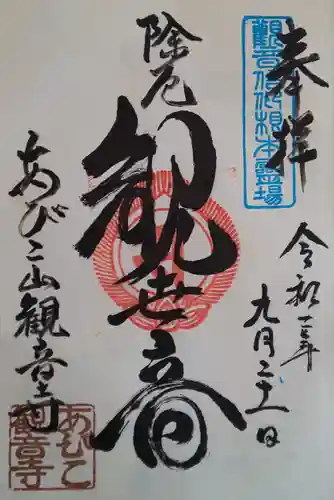 奉拝
觀音信仰根本靈場
令和二年
九月二十一日
除厄
観世音
あびこ山観音寺
あびこ
観音寺